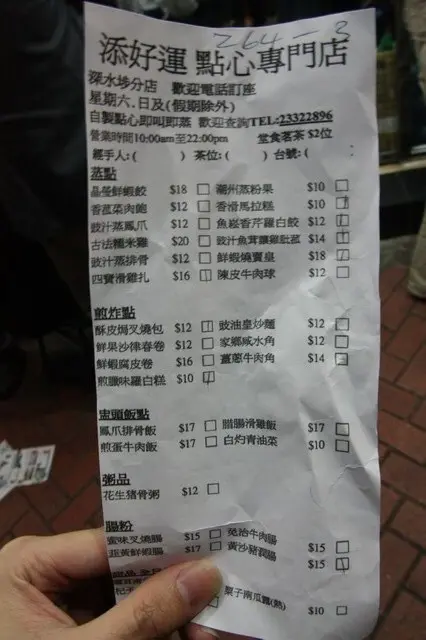 264-3
添好運 點心專門店
深水埗分店 歡迎電話訂座
星期六.日及(假期除外)
自製點心即叫即蒸 歡迎查詢TEL:23322896
營業時間10:00am至22:00pm 堂食茗茶 $2位
經手人:( ) 茶位:( ) 台號:( :
蒸點
晶瑩鮮蝦餃 $18 潮州蒸粉果 $10
香茜菜肉飽 $12 香滑馬拉糕 $10
豉汁蒸鳳爪 $12 魚崧香芹羅白餃 $12
古法糯米雞 $20 豉汁魚茸釀雞肶菰 $14
豉汁蒸排骨 $12 鮮蝦燒賣皇 $18
四寶滑雞扎 $16 陳皮牛肉球 $12
煎炸點
酥皮焗叉燒包 $12 豉油皇炒麵 $12
鮮果沙律春卷 $12 家鄉咸水角 $12
鮮蝦腐皮卷 $16 薑蔥牛肉角 $14
煎臘味羅白糕 $10
盅頭飯點
鳳爪排骨飯 $17 腊腸滑雞飯 $17
煎蛋牛肉飯 $17 白灼青油菜 $10
粥品
花生豬骨粥 $12
腸粉
蜜味叉燒腸 $15 芫茜牛肉腸 $15
韮黃鮮蝦腸 $17 黃沙豬潤腸 $15
栗子南瓜露(熱) $10